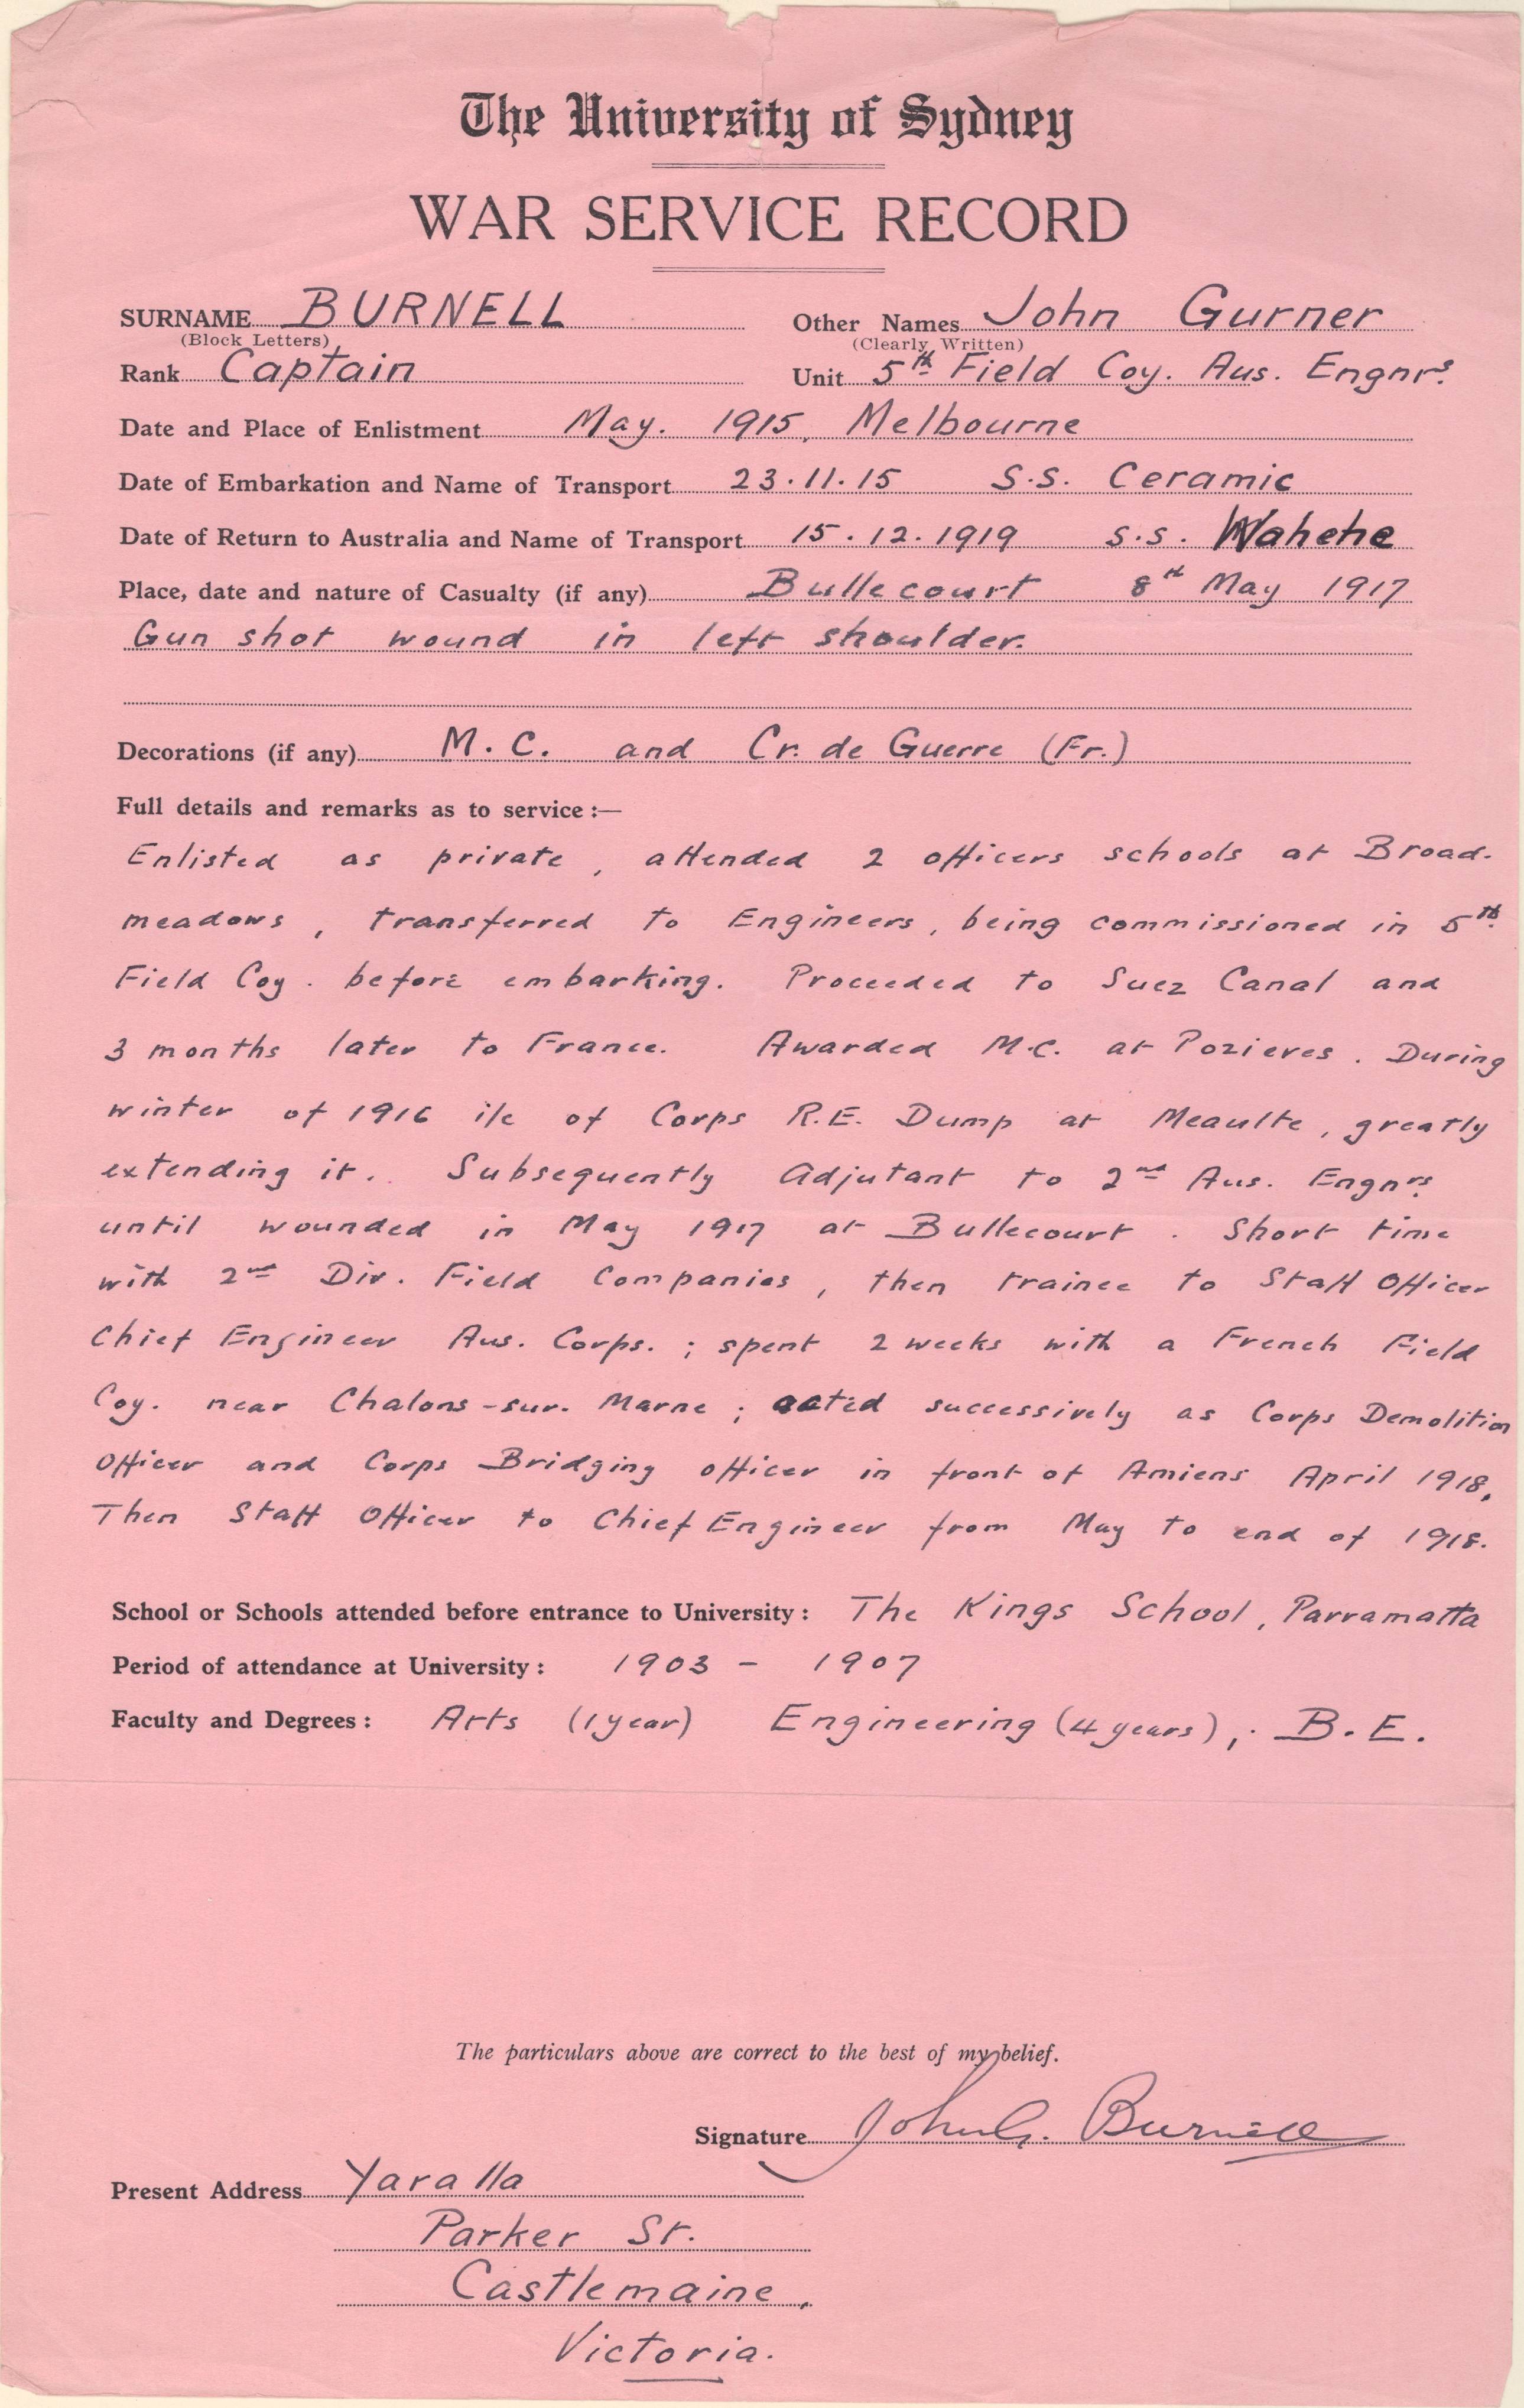 The University of Sydney
WAR SERVICE RECORD
SURNAME BURNELL Other Names John Gurner
(Block Letters) (Clearly Written)
Rank Captain Unit 5th Field Coy. Aus. Engnrs.
Date and Place of Enlistment May. 1915, Melbourne
Date of Embarkation and Name of Transport 23.11.15 S.S. Ceramic
Date of Return to Australia and Name of Transport 15.12.1919 S.S. Wahehe
Place, date and nature of Casualty (if any) Bullecourt 8th May 1917
Gun shot wound in left shoulder.
Decorations (if any) M.C. and Cr. de Guerre (Fr.)
Full details and remarks as to service :—
Enlisted as private, attended 2 officers schools at Broad-
meadows, transferred to Engineers, being commissioned in 5th
Field Coy. before embarking. Proceeded to Suez Canal and
3 months later to France. Awarded M.C. at Pozieres. During
winter of 1916 i/c of Corps R.E. Dump at Meaulte, greatly
extending it. Subsequently Adjutant to 2nd Aus. Engnrs.
until wounded in May 1917 at Bullecourt. Short time
with 2nd Div. Field Companies, then trainee to Staff Officer
Chief Engineer Aus. Corps.; spent 2 weeks with a French Field
Coy. near Chalons-sur. Marne; acted successively as Corps Demolition
Officer and Corps Bridging officer in front of Amiens April 1918,
Then Staff Officer to Chief Engineer from May to end of 1918.
School or Schools attended before entrance to University : The Kings School, Parramatta
Period of attendance at University : 1903 - 1907
Faculty and Degrees : Arts (1 year) Engineering (4 years), B.E.
The particulars above are correct to the best of my belief.
Signature John G. Burnell
Present Address Yaralla
Parker St.
Castlemaine,
Victoria.